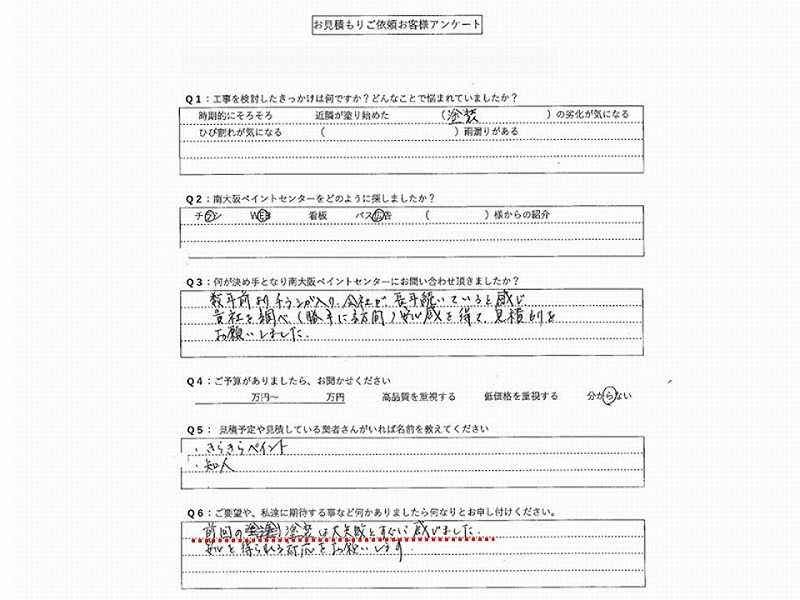 お見積もりご依頼お客様アンケート
Q1：工事を検討したきっかけは何ですか？どんなことで悩まれていましたか？
時期的にそろそろ 近隣が塗り始めた （塗装 ）の劣化が気になる
ひび割れが気になる （ ）雨漏りがある
Q2：南大阪ペイントセンターをどのように探しましたか？
チラシ WEB 看板 バス広告 （ ）様からの紹介
Q3：何が決め手となり南大阪ペイントセンターにお問い合わせ頂きましたか？
数年前よりチラシが入り、会社が、長年続いていると感じ
貴社を調べ、（勝手に訪問）安心感を得て、見積りを
お願いしました。
Q4：ご予算がありましたら、お聞かせください
万円～ 万円 高品質を重視する 低価格を重視する 分からない
Q5： 見積予定や見積している業者さんがいれば名前を教えてください
・きらきらペイント
・知人
Q6：ご要望や、私達に期待する事など何かありましたら何なりとお申し付けください。
前回の 塗装は大失敗とすぐに感じました。
安心を得られる対応をお願いします